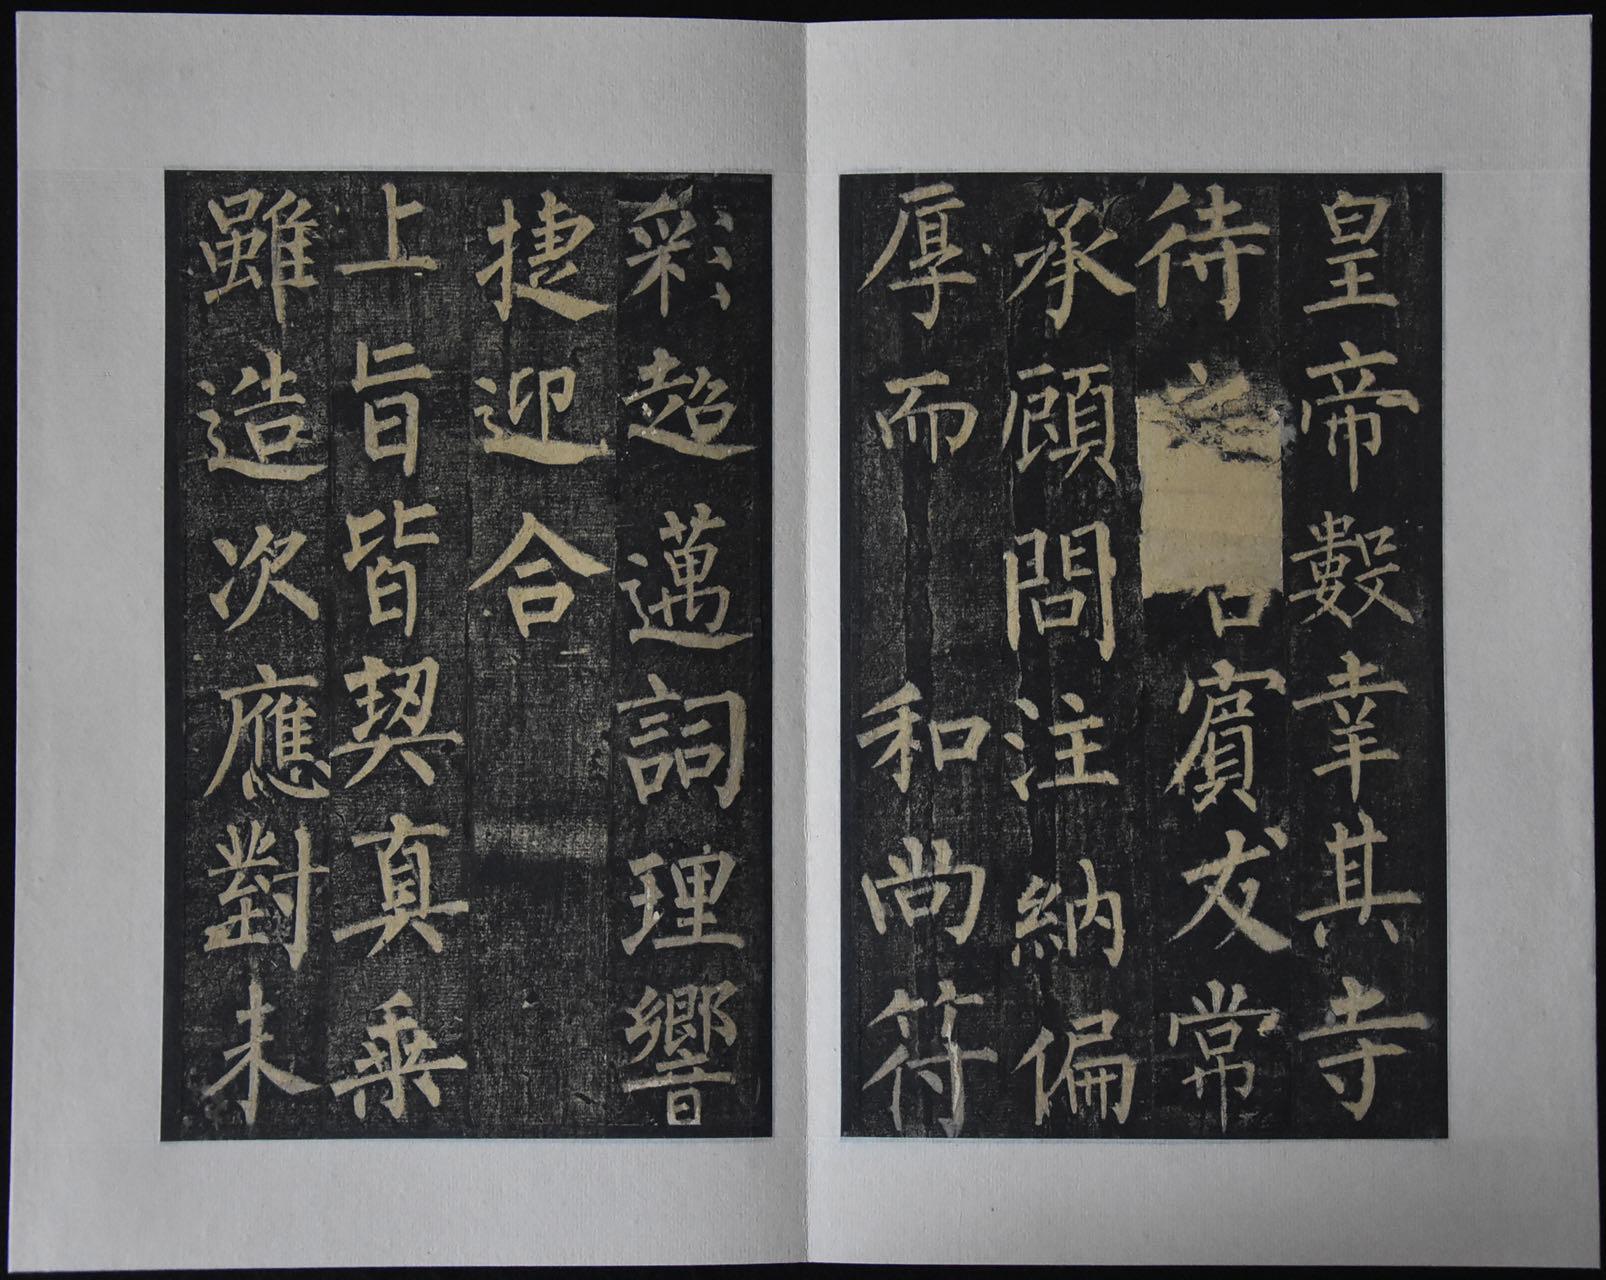 皇帝數幸其寺
待賓友常
承顧問注納偏
厚而和尚符
彩超邁詞理響
捷迎合
上旨皆契真乘
雖造次應對未